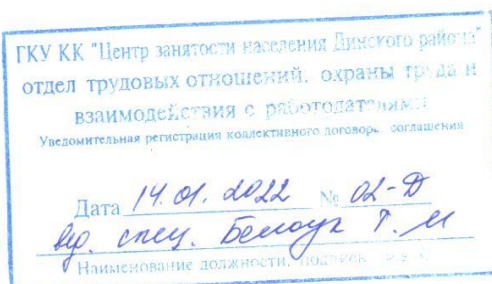 ГКУ КК "Центр занятости населения Динского района"
отдел трудовых отношений, охраны труда и
взаимодействия с работодателями
Уведомительная регистрация коллективного договора, соглашения
Дата 14.01.2022 № 02-Д
вед. спец. Т. И
Наименование должности, подпись